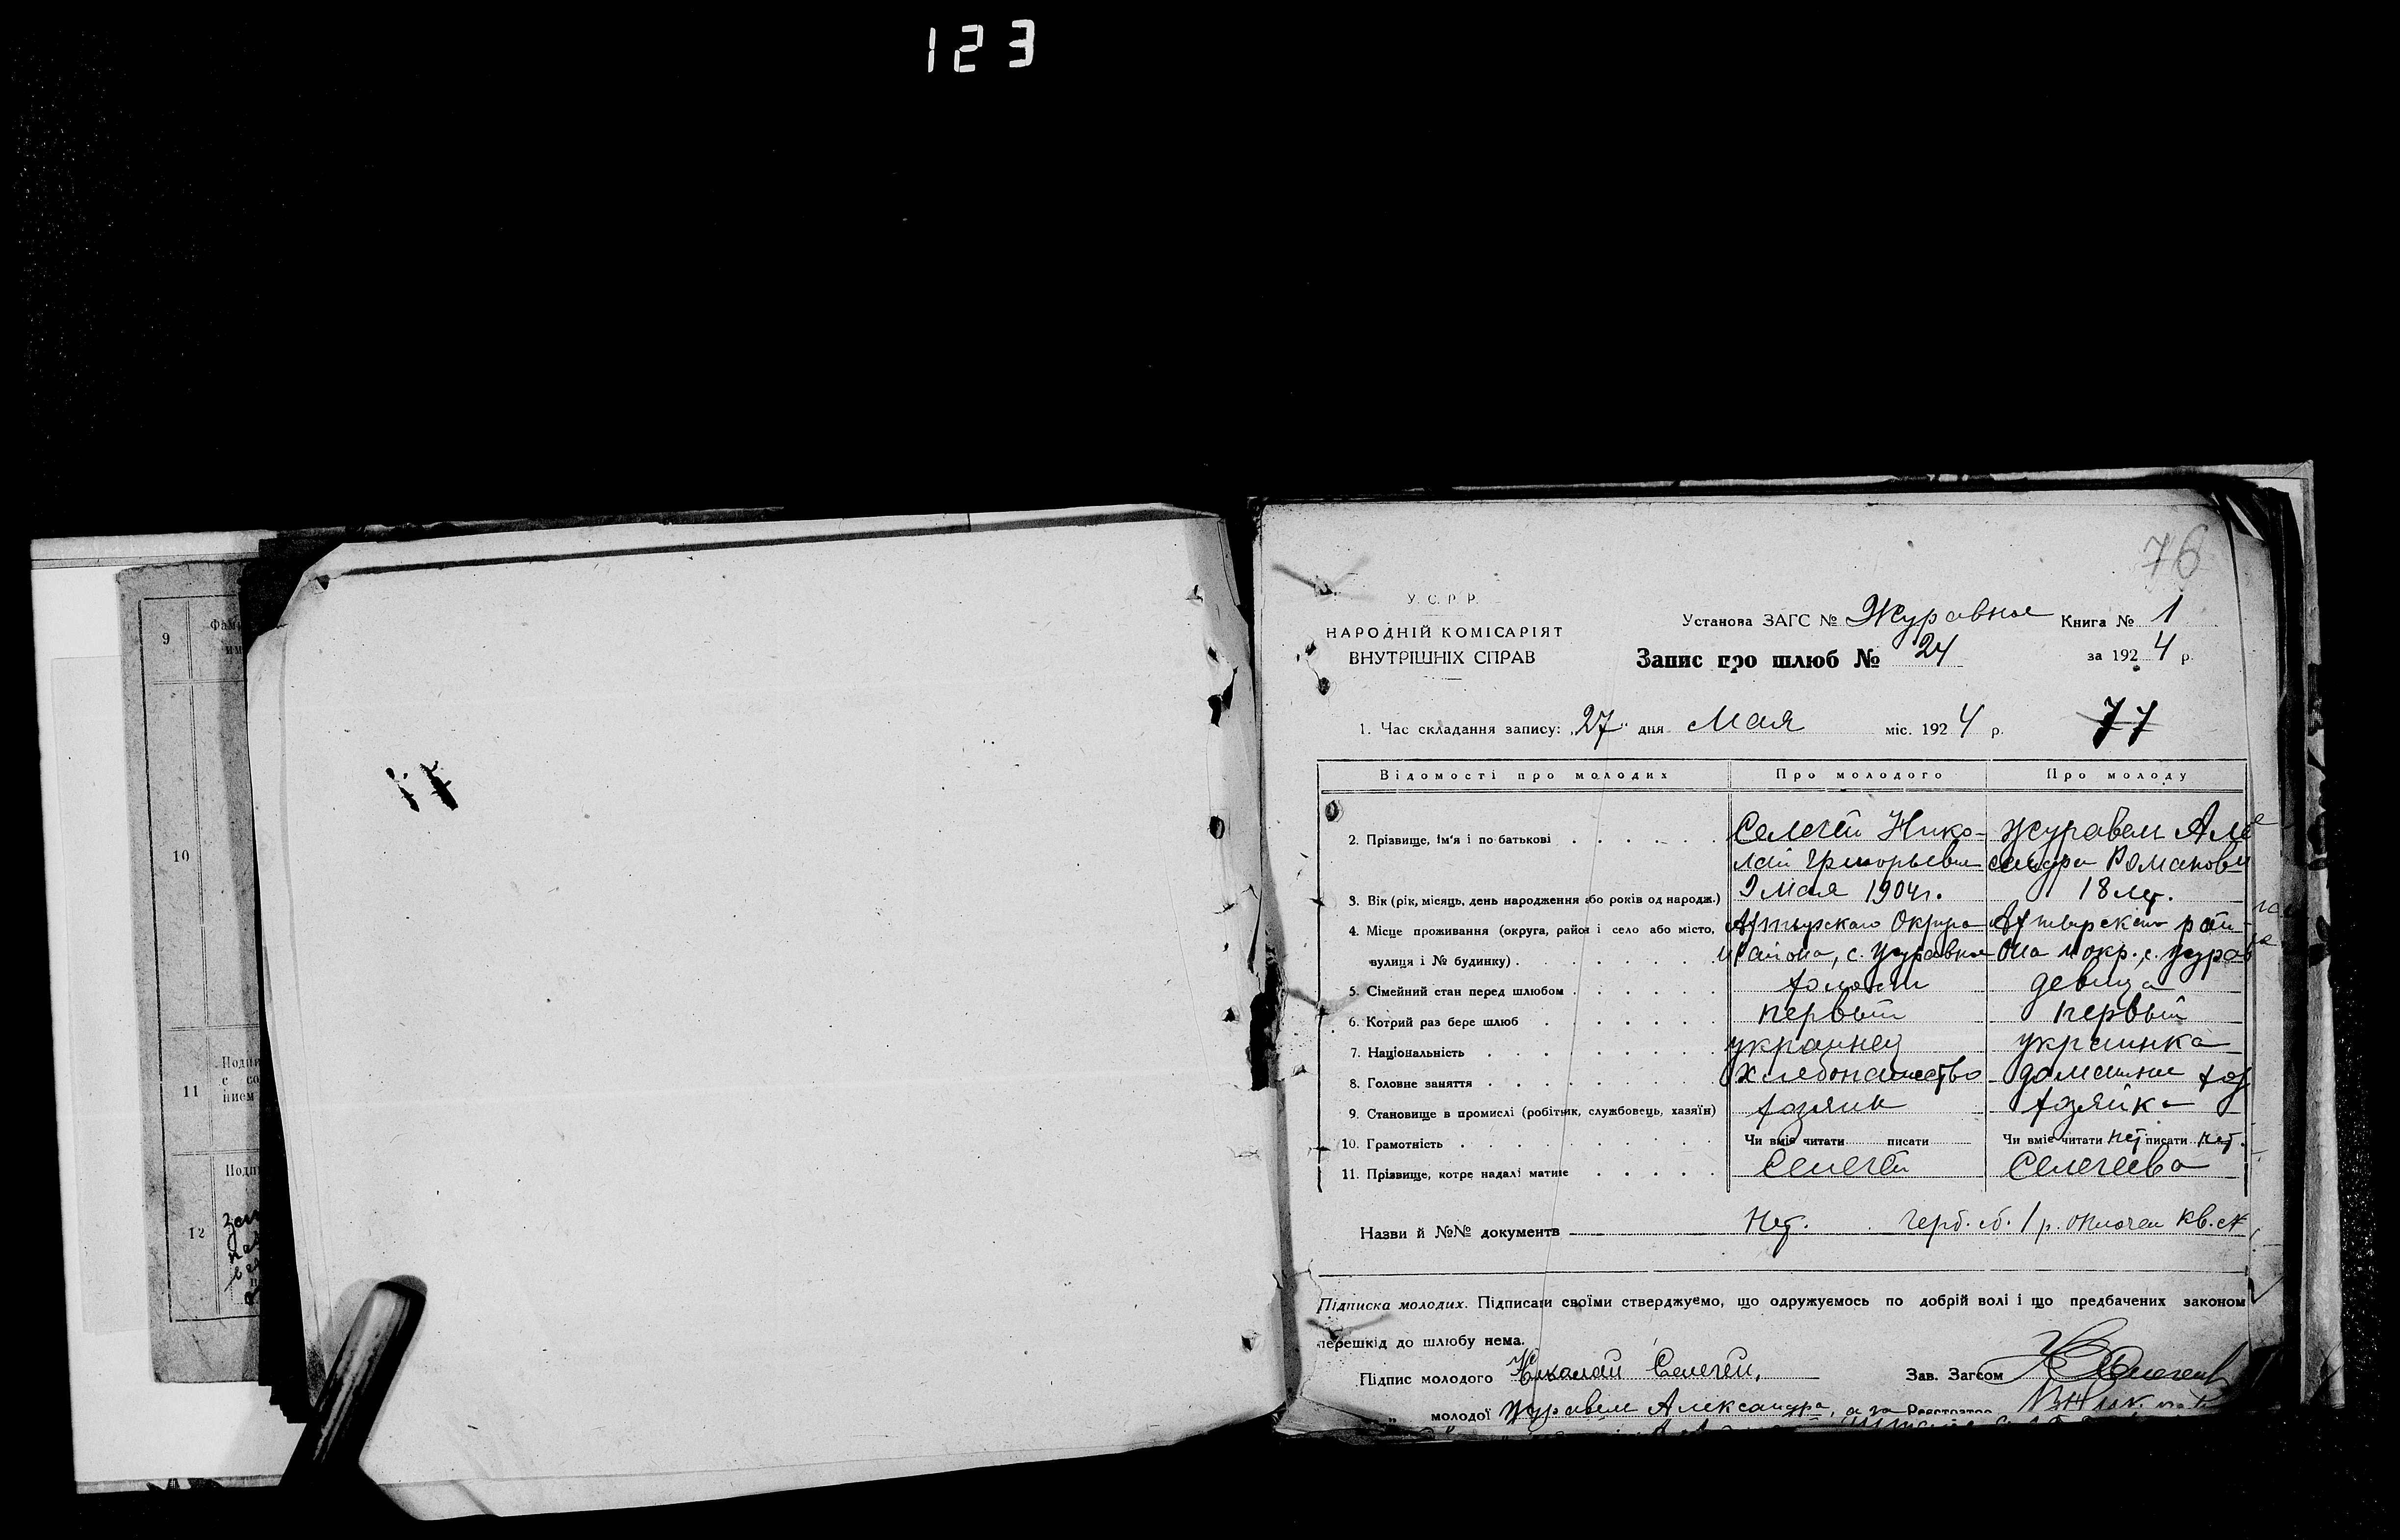 123
9
10
11
12
76
У. С. Р. Р.
НАРОДНІЙ КОМІСАРІЯТ
ВНУТРІШНІХ СПРАВ
Установа ЗАГС № Журавное Книга № 1
Запис про шлюб № 24 за 1924 р.
1. Час складання запису: „27“ дня Мая міс. 1924 р. 77
Відомості про молодих Про молодого Про молоду
2. Прізвище, ім'я і по батькові Селегей Нико- Журавель Але
лай Григорьевич сандра Романовн
3. Вік (рік, місяць, день народження або років од народж.) 9 мая 1904 г. 18 лет.
4. Місце проживання (округа, район і село або місто, Ахтырского Округа Ахтырского рай-
вулиця і № будинку) и района, с. Журавное она и окр., с. Журав
5. Сімейний стан перед шлюбом холост девица
6. Котрий раз бере шлюб первый первый
7. Національність украинец украинка
8. Головне заняття хлебопашество домашн. хоз
9. Становище в промислі (робітник, службовець, хазяїн) хозяин хозяйка
10. Грамотність Чи вміє читати писати Чи вміє читати нет писати нет.
11. Прізвище, котре надалі матиме Селегей Селегеева
Назви й №№ документв Нет. герб. сб. 1 р. оплочен кв.
Підписка молодих. Підписали своїми стверджуємо, що одружуємось по добрій волі і що предбачених законом
перешкід до шлюбу нема.
Підпис молодого Николай Селегей. Зав. Загсом
„ молодої Журавель Александра, а за Реєстратор